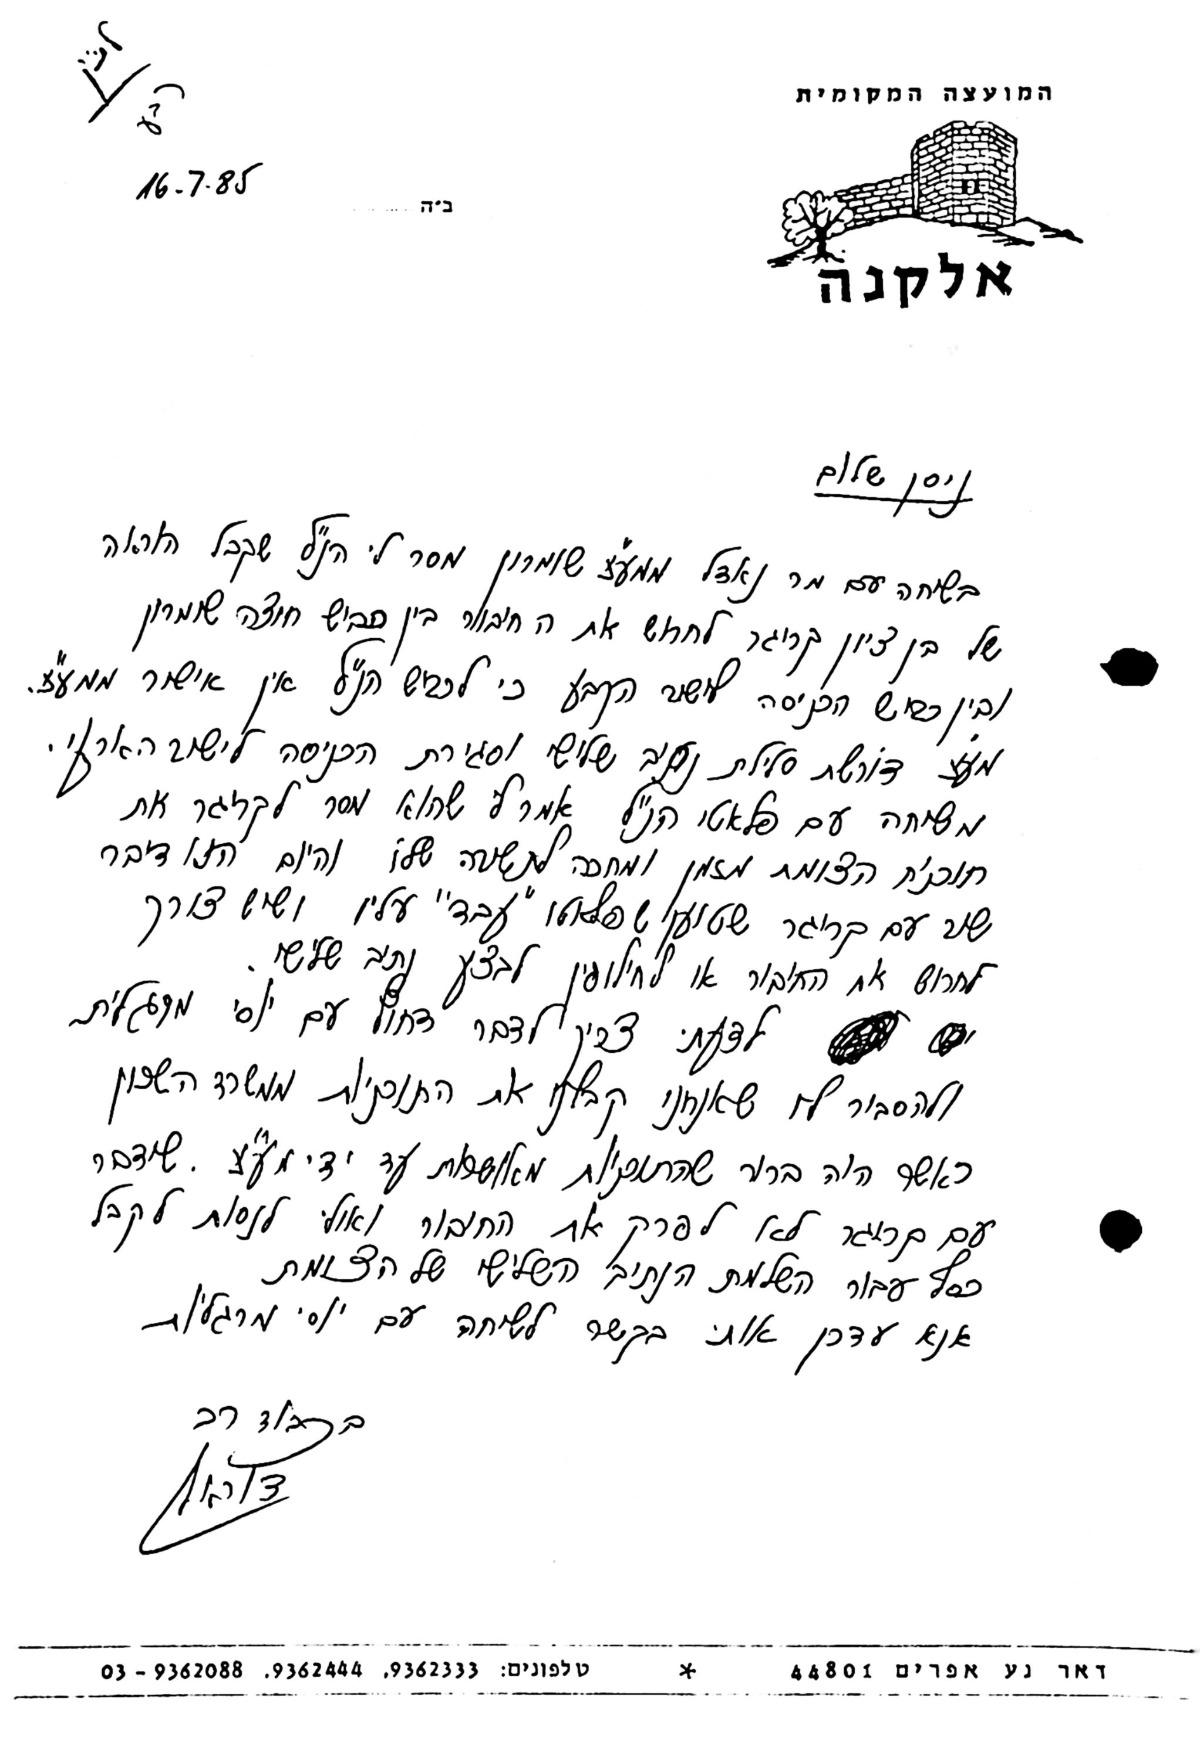 המועצה המקומית
אלקנה
ב"ה
16-7-85
ניסן שלום
בשיחה עם מר נאדל ממע"צ שומרון מסר לי הנ"ל שקבל הוראה
של בן ציון קריגר לחרוש את החיבור בין כביש חוצה שומרון
ובין כביש הכניסה לישוב הקבע כי לכביש הנ"ל אין אישור ממע"צ.
מע"צ דורשת סלילת נתיב שלישי וסגירת הכניסה לישוב הארעי.
משיחה עם פלאטי הנ"ל אמר לי שהוא מסר לקריגר את
תוכנית הצומת מזמן ומחכה לתשובה שלו והיום הוא דיבר
שוב עם קריגר שטוען שפלאטו "עבד" עליו ושיש צורך
לחרוש את החיבור או לחילופין לבצע נתיב שלישי.
לדעתי צריך לדבר דחוף עם יוסי מרגלית
ולהסביר לו שאנחנו קבלנו את התוכניות ממשרד השכון
כאשר היה ברור שהתוכניות מאושרות על ידי מע"צ. שידבר
עם קריגר לא לפרק את החיבור ואולי לנסות לקבל
כסף עבור השלמת הנתיב השלישי של הצומת
אנא עדכן אותי בקשר לשיחה עם יוסי מרגלית
בכבוד רב
דאר נע אפרים 44801 * טלפונים: 9362333, 9362444, 03-9362088